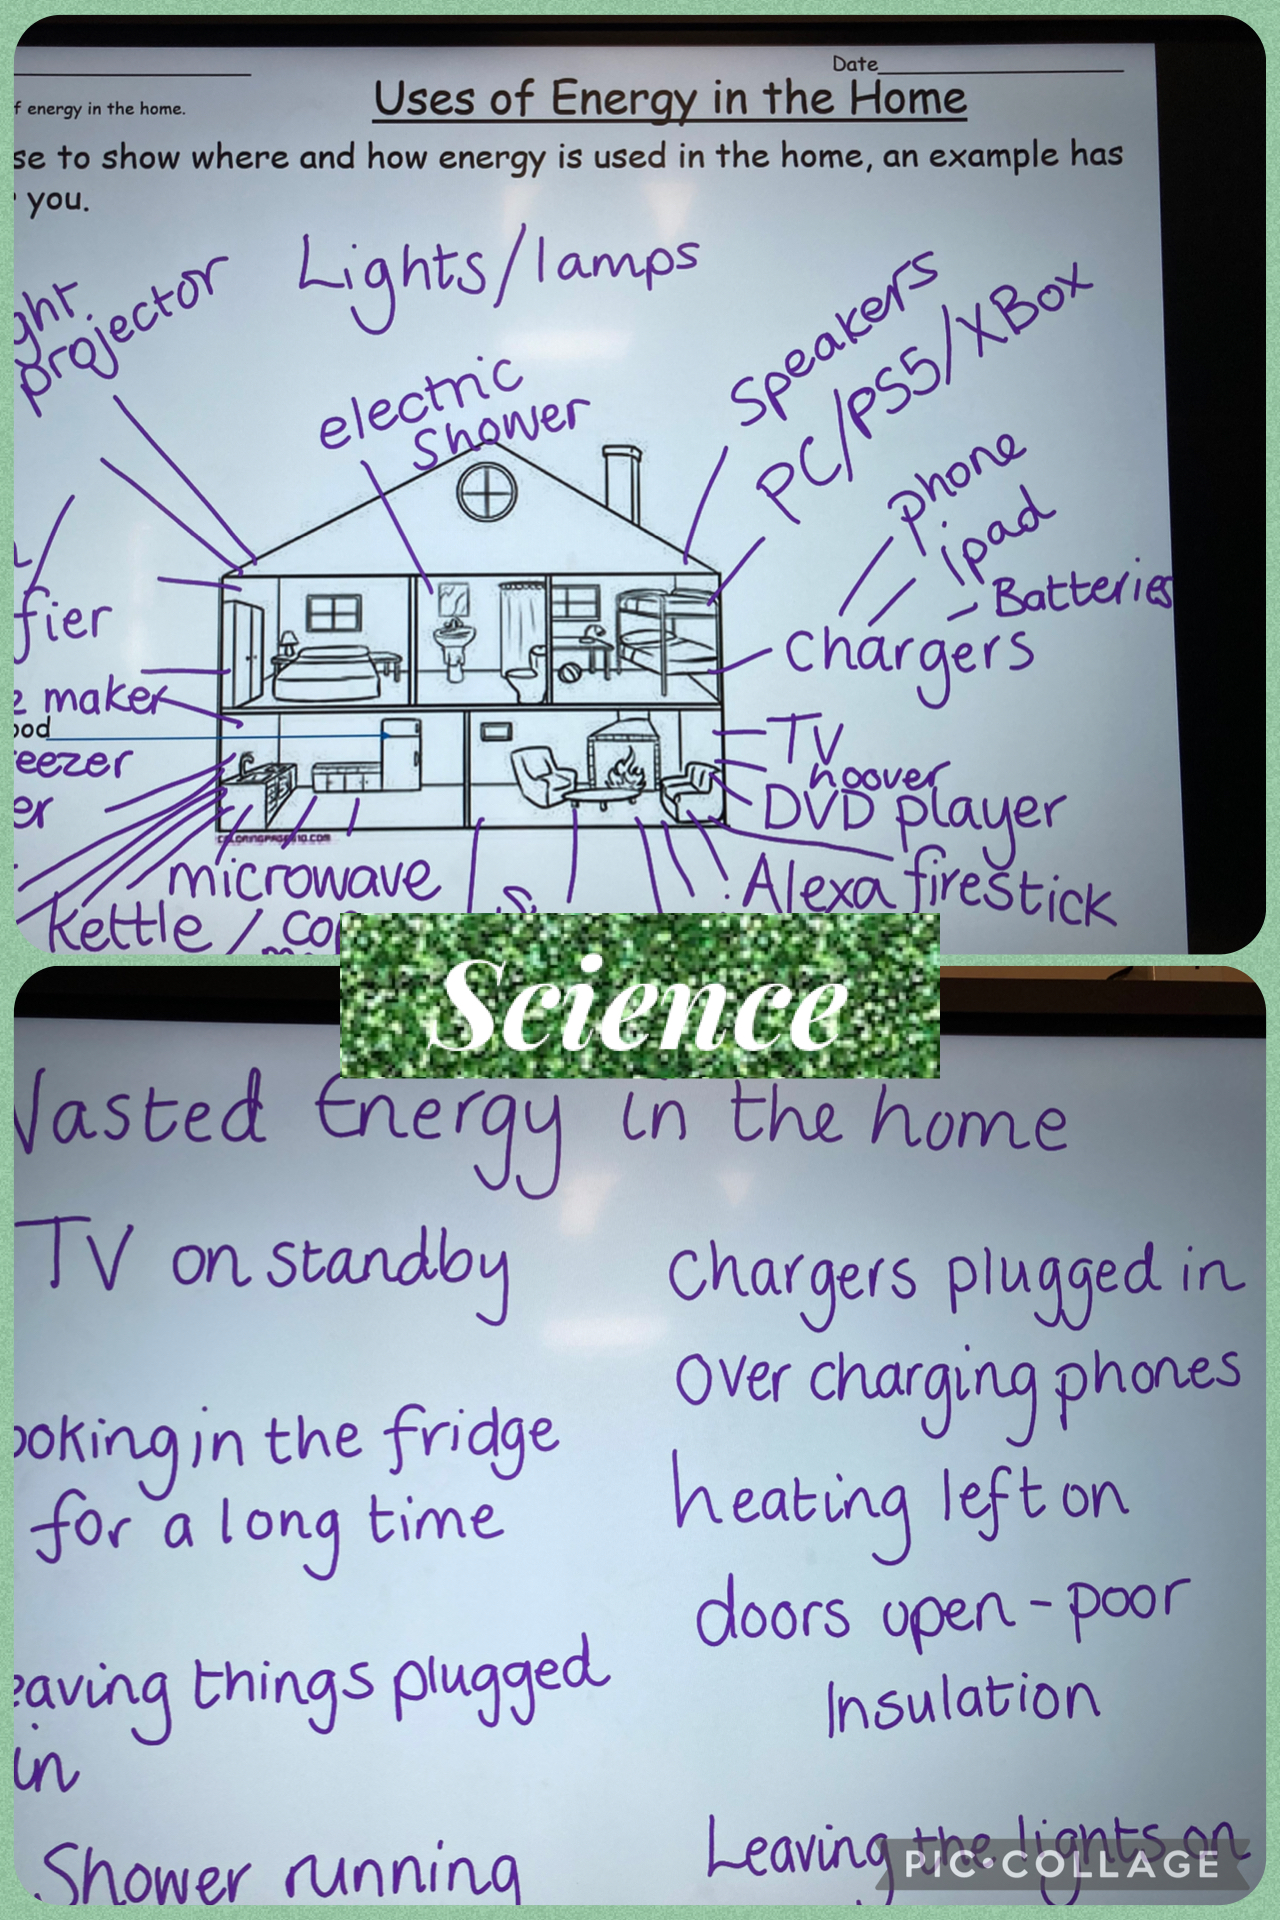 Date
Uses of Energy in the Home
f energy in the home.
se to show where and how energy is used in the home, an example has
you.
Lights/lamps
ght
projector
electric
Shower
Speakers
PC/PS5/XBox
phone
ipad
- Batteries
chargers
fier
maker
ood
eezer
er
TV
hoover
DVD player
Alexa firestick
microwave
kettle /
COLORINGPAGES10.COM
Science
Wasted Energy in the home
TV on standby
ooking in the fridge
for a long time
eaving things plugged
in
Shower running
chargers plugged in
over charging phones
heating left on
doors open - poor
Insulation
Leaving the lights on
PIC•COLLAGE